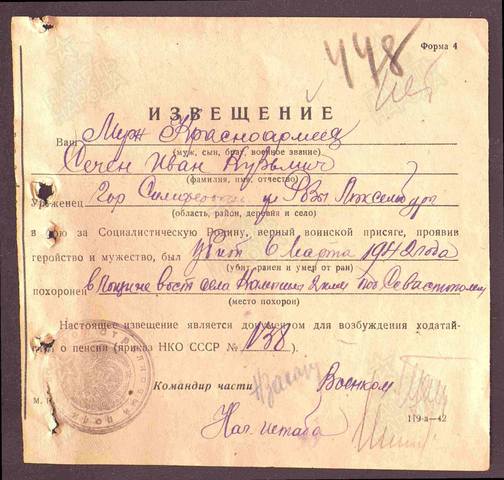 448
Форма 4
ИЗВЕЩЕНИЕ
Ваш Муж Красноармеец
(муж, сын, брат, военное звание)
Сечен Иван Кузьмич
(фамилия, имя, отчество)
Уроженец Гор ул Розы Люксембург
(область, район, деревня и село)
в бою за Социалистическую Родину, верный воинской присяге, проявив
геройство и мужество, был убит 6 марта 1942 года
(убит, ранен и умер от ран)
похоронен в вост 2 клм под Севастополем
(место похорон)
Настоящее извещение является документом для возбуждения ходатай-
ст о пенсии (приказ НКО СССР № 138).
Командир части
Военком
М. П.
Нач. штаба
119-я—42